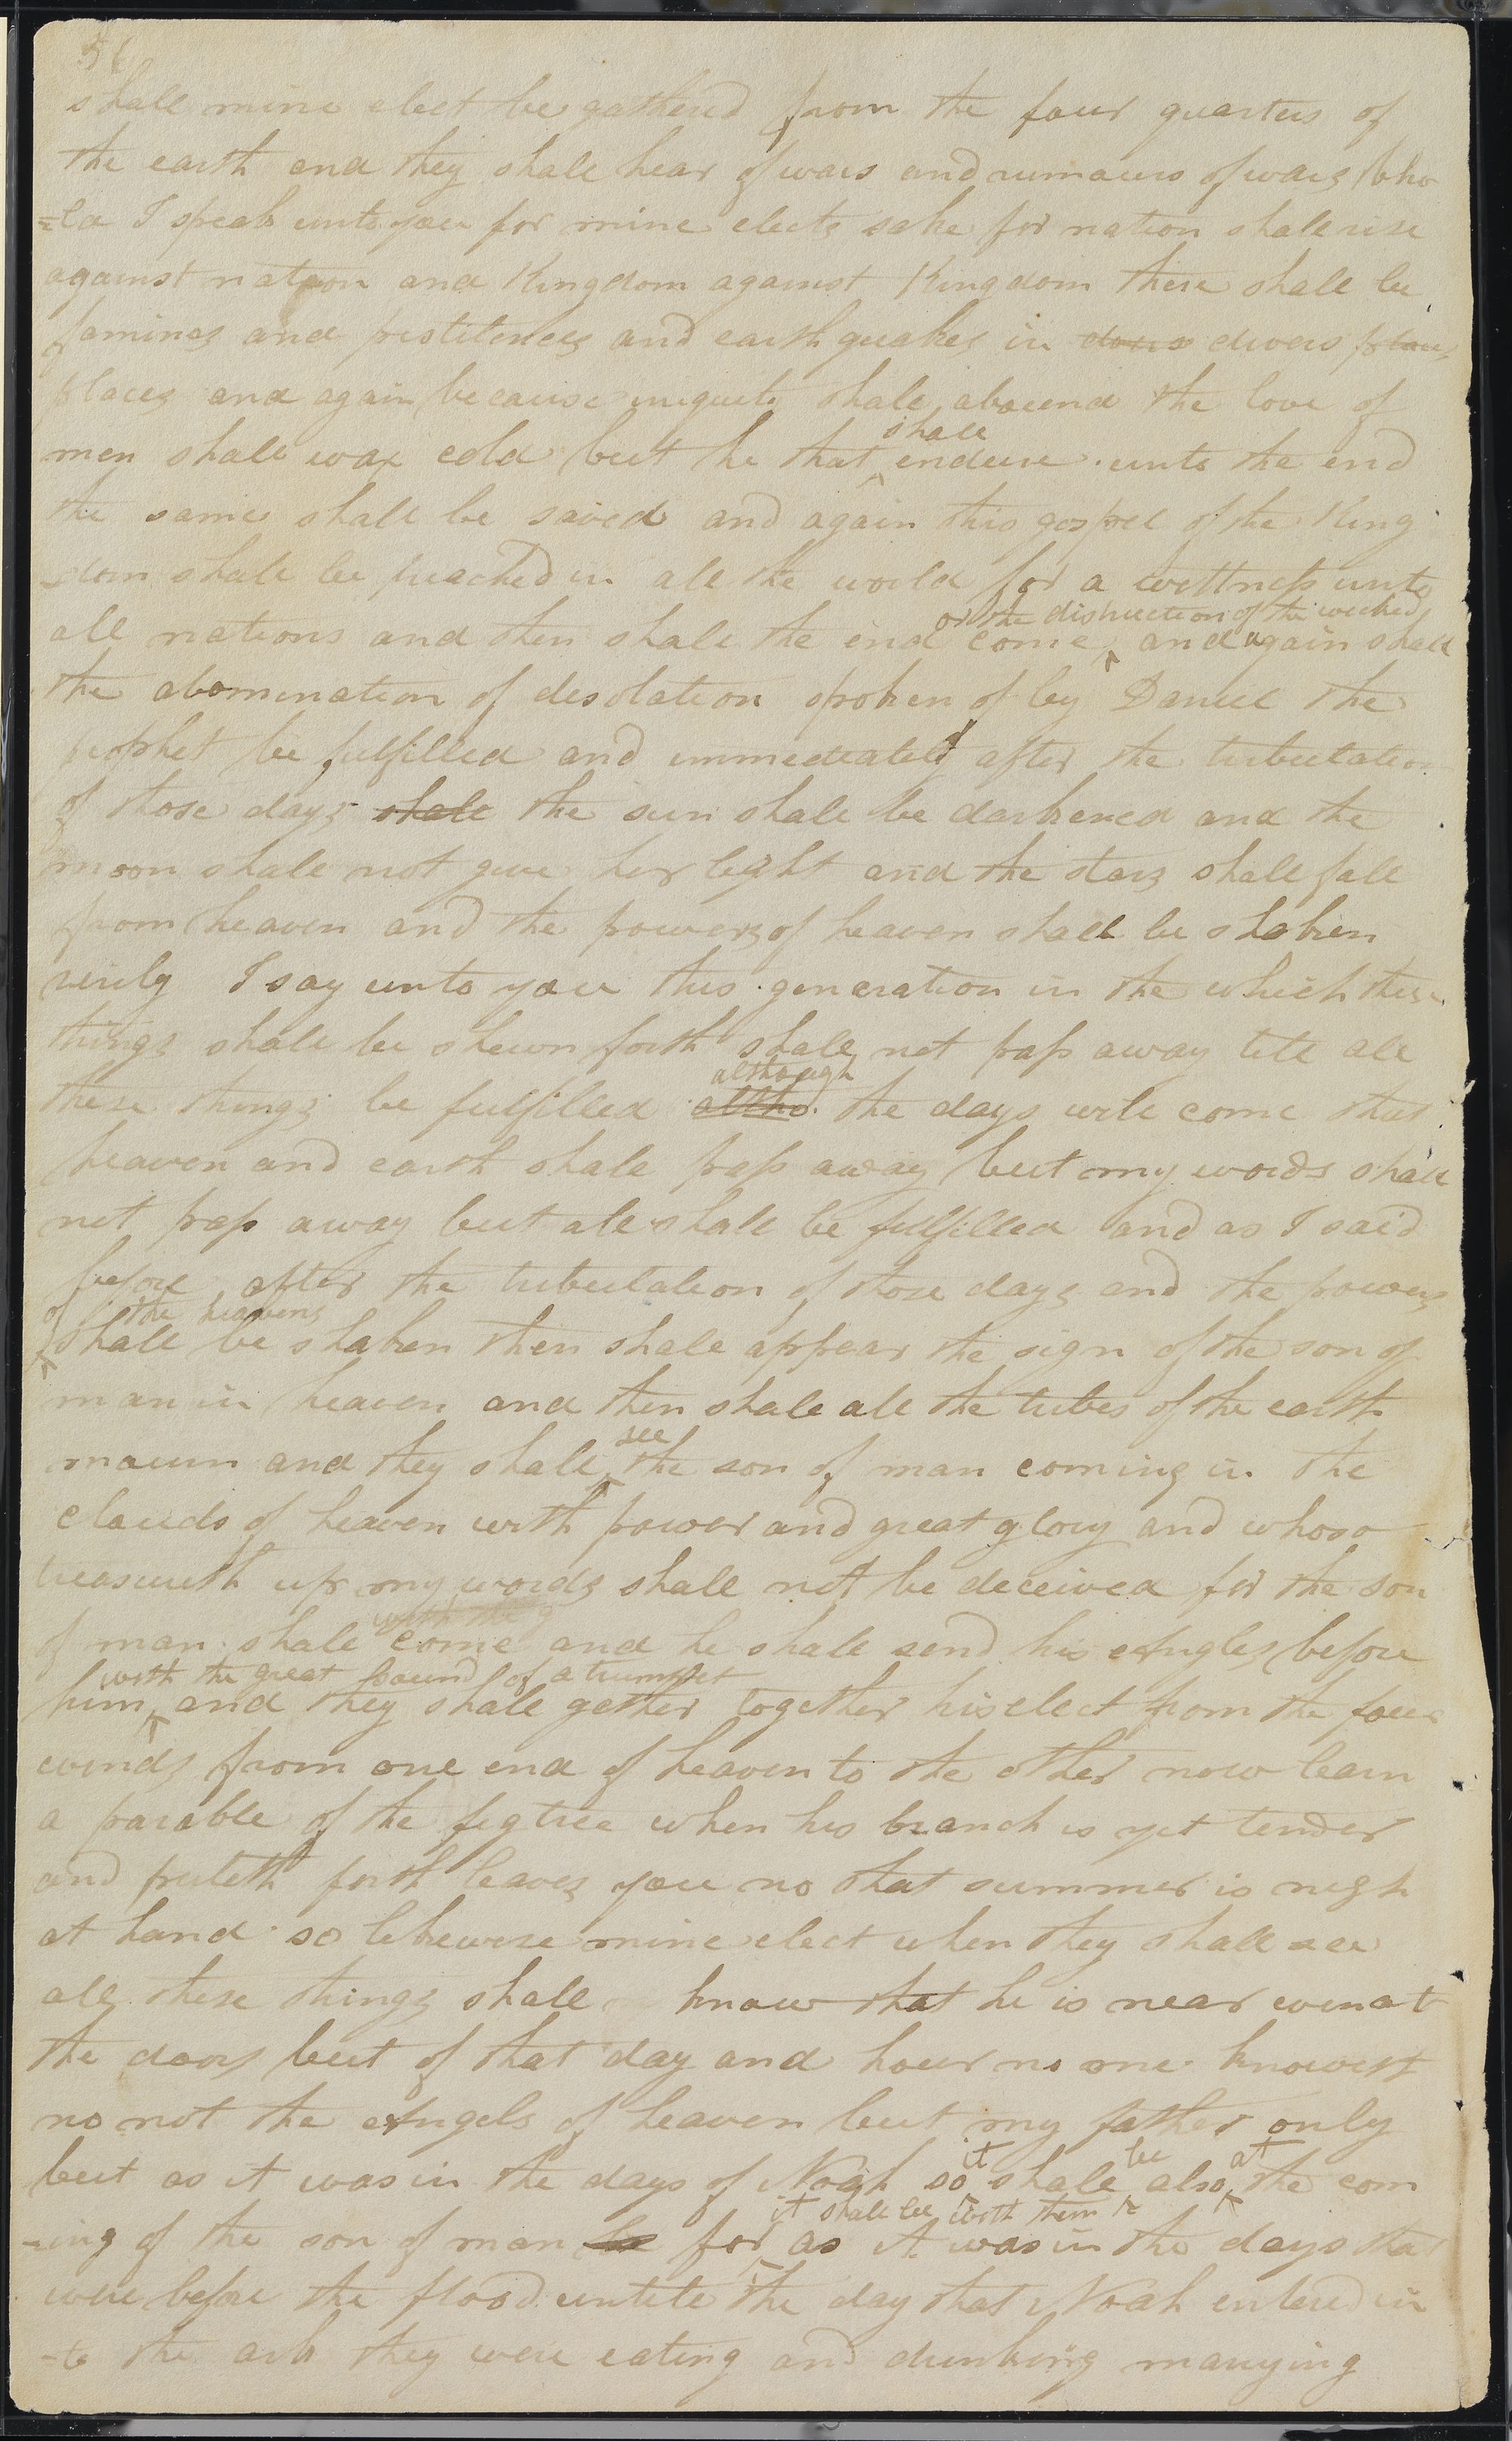 56
shall mine elect be gathered from the four quarters of
the earth and they shall hear of wars and rumours of wars beho
=ld I speak unto you for mine elects sake for nation shall rise
against nation and Kingdom against Kingdom there shall be
famines and pestilences and earth quakes in divers
places and again because iniquity shall abound the love of
shall
men shall wax cold but he that endure unto the end
the same shall be saved and again this gospel of the King
=dom shall be preached in all the world for a wittness unto
or the distruction of the wicked
all nations and then shall the end come and again shall
the abomination of desolation spoken of by Daniel the
prophet be fulfilled and immediately after the tribulation
of those days shall the sun shall be darkened and the
moon shall not give her light and the stars shall fall
from heaven and the powers of heaven shall be shaken
verily I say unto you this generation in the which these
things shall be shewn forth shall not pass away till all
although
these things be fulfilled altho the days will come that
heaven and earth shall pass away but my words shall
not pass away but all shall be fulfilled and as I said
before after the tribulation of those days and the powers
of the heavens
shall be shaken then shall appear the sign of the son of
man in heaven and then shall all the tribes of the earth
see
mourn and they shall the son of man coming in the
clouds of heaven with power and great glory and whoso
treasureth up my words shall not be deceived for the son
with the g
of man shall come and he shall send his angles before
with the great sound of a trumpet
him and they shall gether together his elect from the four
winds from one end of heaven to the other now learn
a parable of the figtree when his branch is yet tender
and puteth forth leaves you no that summer is nigh
at hand so likewise mine elect when they shall see
all these things shall know that he is near even at
the doors but of that day and hour no one knoweth
no not the angels of heaven but my father only
it be at
but as it was in the days of Noah so shall also the com
it shall be with them
=ing of the son of man be for as it was in the days that
were before the flood untill the day that Noah entered in
=to the ark they were eating and drinking marrying